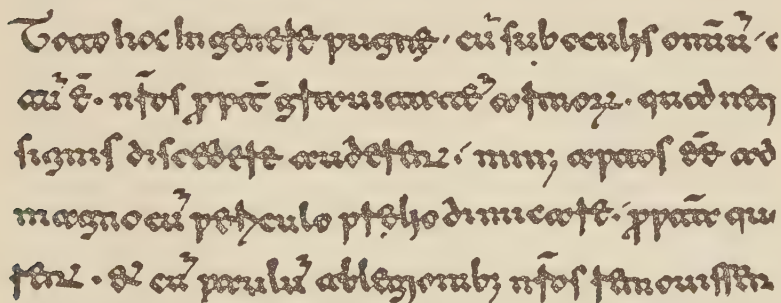 Toto hoc In genere pugne · cū sub oculis omiū · c
tū ē · nr̄os ppt̄ grauitatē armoꝝ · quod neq
signis discedere auderent · min; aptos ēē ad
magno cū periculo prelio dimicare · ppt̄ea qu
rent · & cū paulū ablegionib; nr̄os remouissen